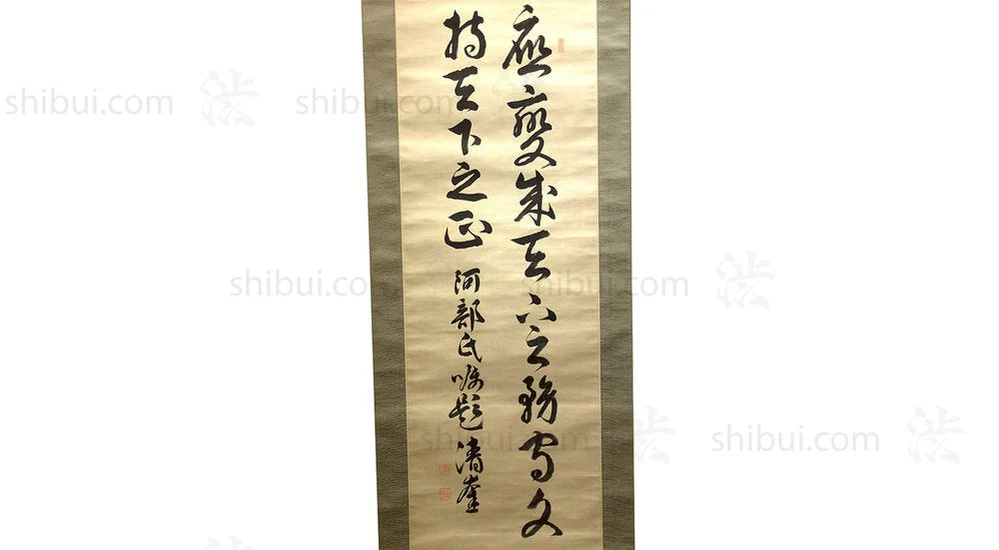 應變成天下之務守文
持天下之正 阿部氏嘱題 清奎
shibui.com 渋 shibui.com
shibui.com shibui.com 渋
渋 shibui.com 渋